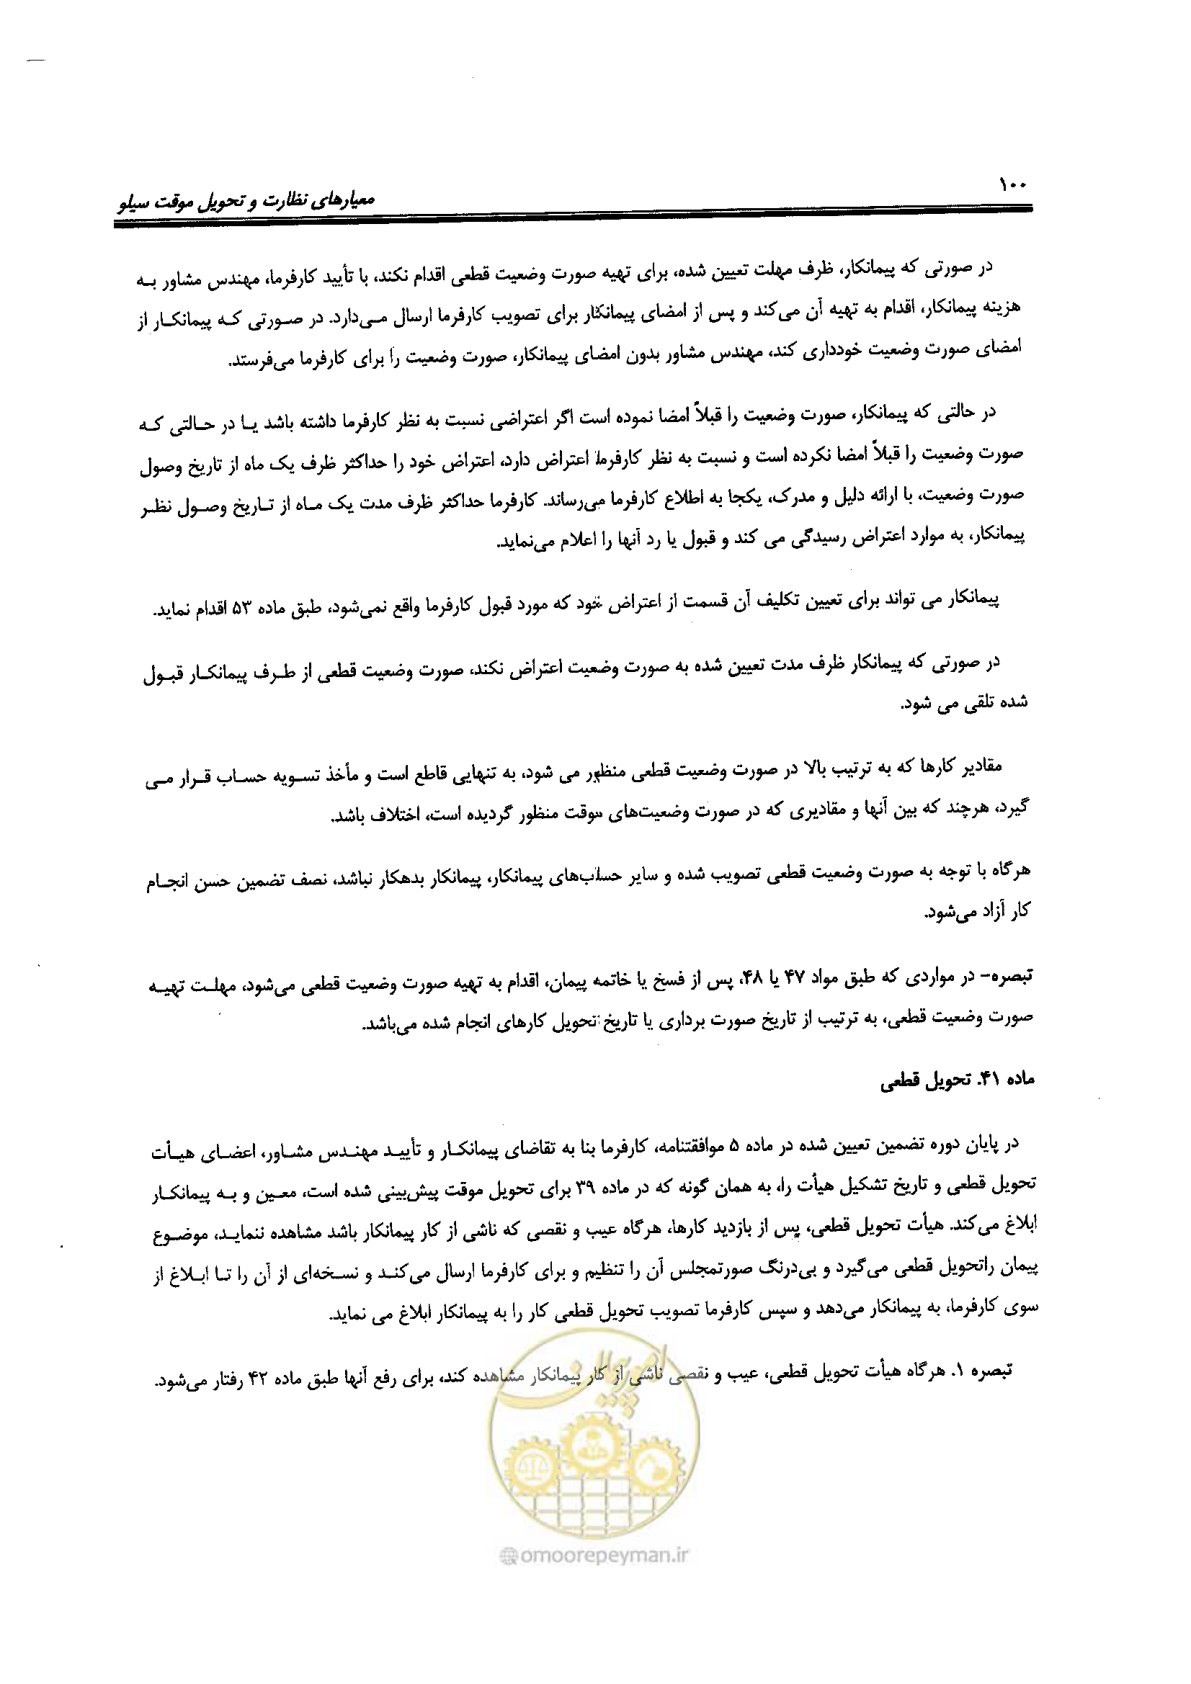 ۱۰۰
معیارهای نظارت و تحویل موقت سیلو
در صورتی که پیمانکار، ظرف مهلت تعیین شده، برای تهیه صورت وضعیت قطعی اقدام نکند، با تأیید کارفرما، مهندس مشاور به
هزینه پیمانکار، اقدام به تهیه آن می‌کند و پس از امضای پیمانکار برای تصویب کارفرما ارسال می‌دارد. در صورتی که پیمانکار از
امضای صورت وضعیت خودداری کند، مهندس مشاور بدون امضای پیمانکار، صورت وضعیت را برای کارفرما می‌فرستد.
در حالتی که پیمانکار، صورت وضعیت را قبلاً امضا نموده است اگر اعتراضی نسبت به نظر کارفرما داشته باشد یا در حالتی که
صورت وضعیت را قبلاً امضا نکرده است و نسبت به نظر کارفرما اعتراض دارد، اعتراض خود را حداکثر ظرف یک ماه از تاریخ وصول
صورت وضعیت، با ارائه دلیل و مدرک، یکجا به اطلاع کارفرما می‌رساند. کارفرما حداکثر ظرف مدت یک ماه از تاریخ وصول نظر
پیمانکار، به موارد اعتراض رسیدگی می کند و قبول یا رد آنها را اعلام می‌نماید.
پیمانکار می تواند برای تعیین تکلیف آن قسمت از اعتراض خود که مورد قبول کارفرما واقع نمی‌شود، طبق ماده ۵۳ اقدام نماید.
در صورتی که پیمانکار ظرف مدت تعیین شده به صورت وضعیت اعتراض نکند، صورت وضعیت قطعی از طرف پیمانکار قبول
شده تلقی می شود.
مقادیر کارها که به ترتیب بالا در صورت وضعیت قطعی منظور می شود، به تنهایی قاطع است و مأخذ تسویه حساب قرار می
گیرد، هرچند که بین آنها و مقادیری که در صورت وضعیت‌های موقت منظور گردیده است، اختلاف باشد.
هرگاه با توجه به صورت وضعیت قطعی تصویب شده و سایر حساب‌های پیمانکار، پیمانکار بدهکار نباشد، نصف تضمین حسن انجام
کار آزاد می‌شود.
تبصره- در مواردی که طبق مواد ۴۷ یا ۴۸، پس از فسخ یا خاتمه پیمان، اقدام به تهیه صورت وضعیت قطعی می‌شود، مهلت تهیه
صورت وضعیت قطعی، به ترتیب از تاریخ صورت برداری یا تاریخ تحویل کارهای انجام شده می‌باشد.
ماده ۴۱. تحویل قطعی
در پایان دوره تضمین تعیین شده در ماده ۵ موافقتنامه، کارفرما بنا به تقاضای پیمانکار و تأیید مهندس مشاور، اعضای هیأت
تحویل قطعی و تاریخ تشکیل هیأت را، به همان گونه که در ماده ۳۹ برای تحویل موقت پیش‌بینی شده است، معین و به پیمانکار
ابلاغ می‌کند. هیأت تحویل قطعی، پس از بازدید کارها، هرگاه عیب و نقصی که ناشی از کار پیمانکار باشد مشاهده ننماید، موضوع
پیمان راتحویل قطعی می‌گیرد و بی‌درنگ صورتمجلس آن را تنظیم و برای کارفرما ارسال می‌کند و نسخه‌ای از آن را تا ابلاغ از
سوی کارفرما، به پیمانکار می‌دهد و سپس کارفرما تصویب تحویل قطعی کار را به پیمانکار ابلاغ می نماید.
تبصره ۱. هرگاه هیأت تحویل قطعی، عیب و نقصی ناشی از کار پیمانکار مشاهده کند، برای رفع آنها طبق ماده ۴۲ رفتار می‌شود.
امور پیمان
omoorepeyman.ir